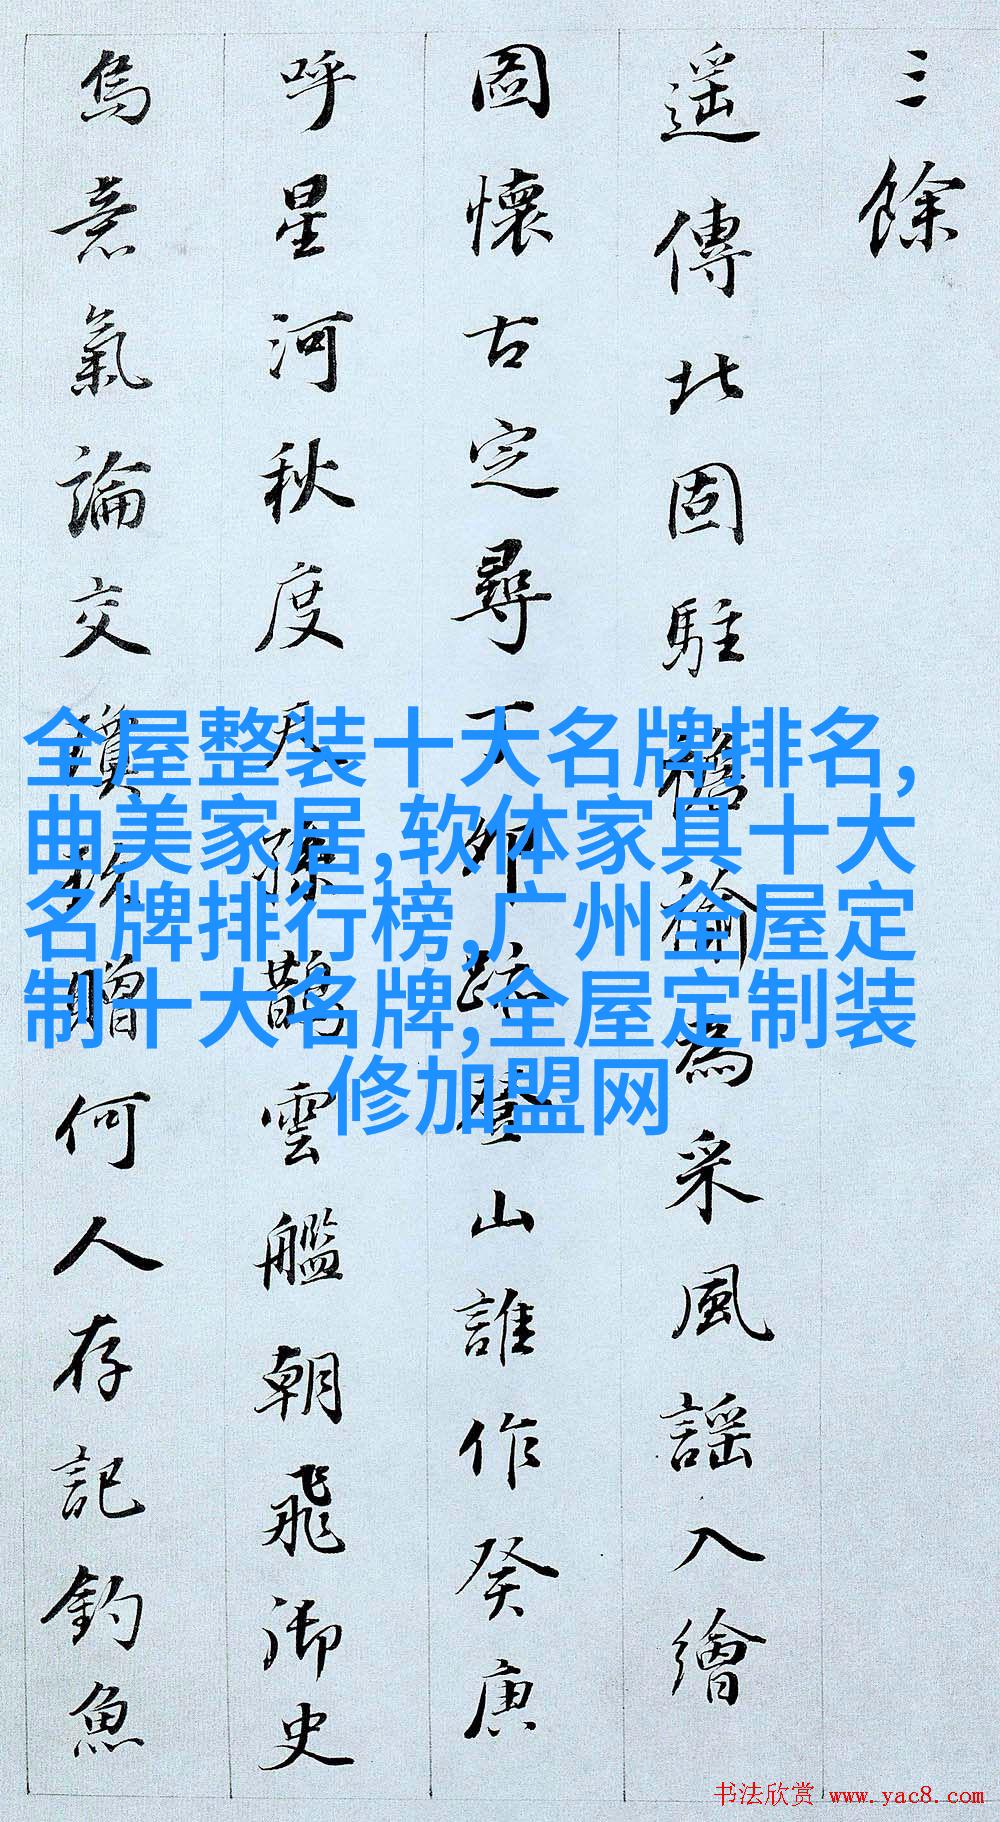 三餘
遥傳北固駐襜褕為采風謡入繪
圖懷古定尋丁卯趁登山誰作癸庚
呼星河秋度天隂鵲雲艦朝飛御史
烏意氣論交瓊玖贈何人存記釣魚
全屋整装十大名牌排名,
曲美家居,软体家具十大
名牌排行榜,广州全屋定
制十大名牌,全屋定制装
修加盟网
书法欣赏 www.yac8.com